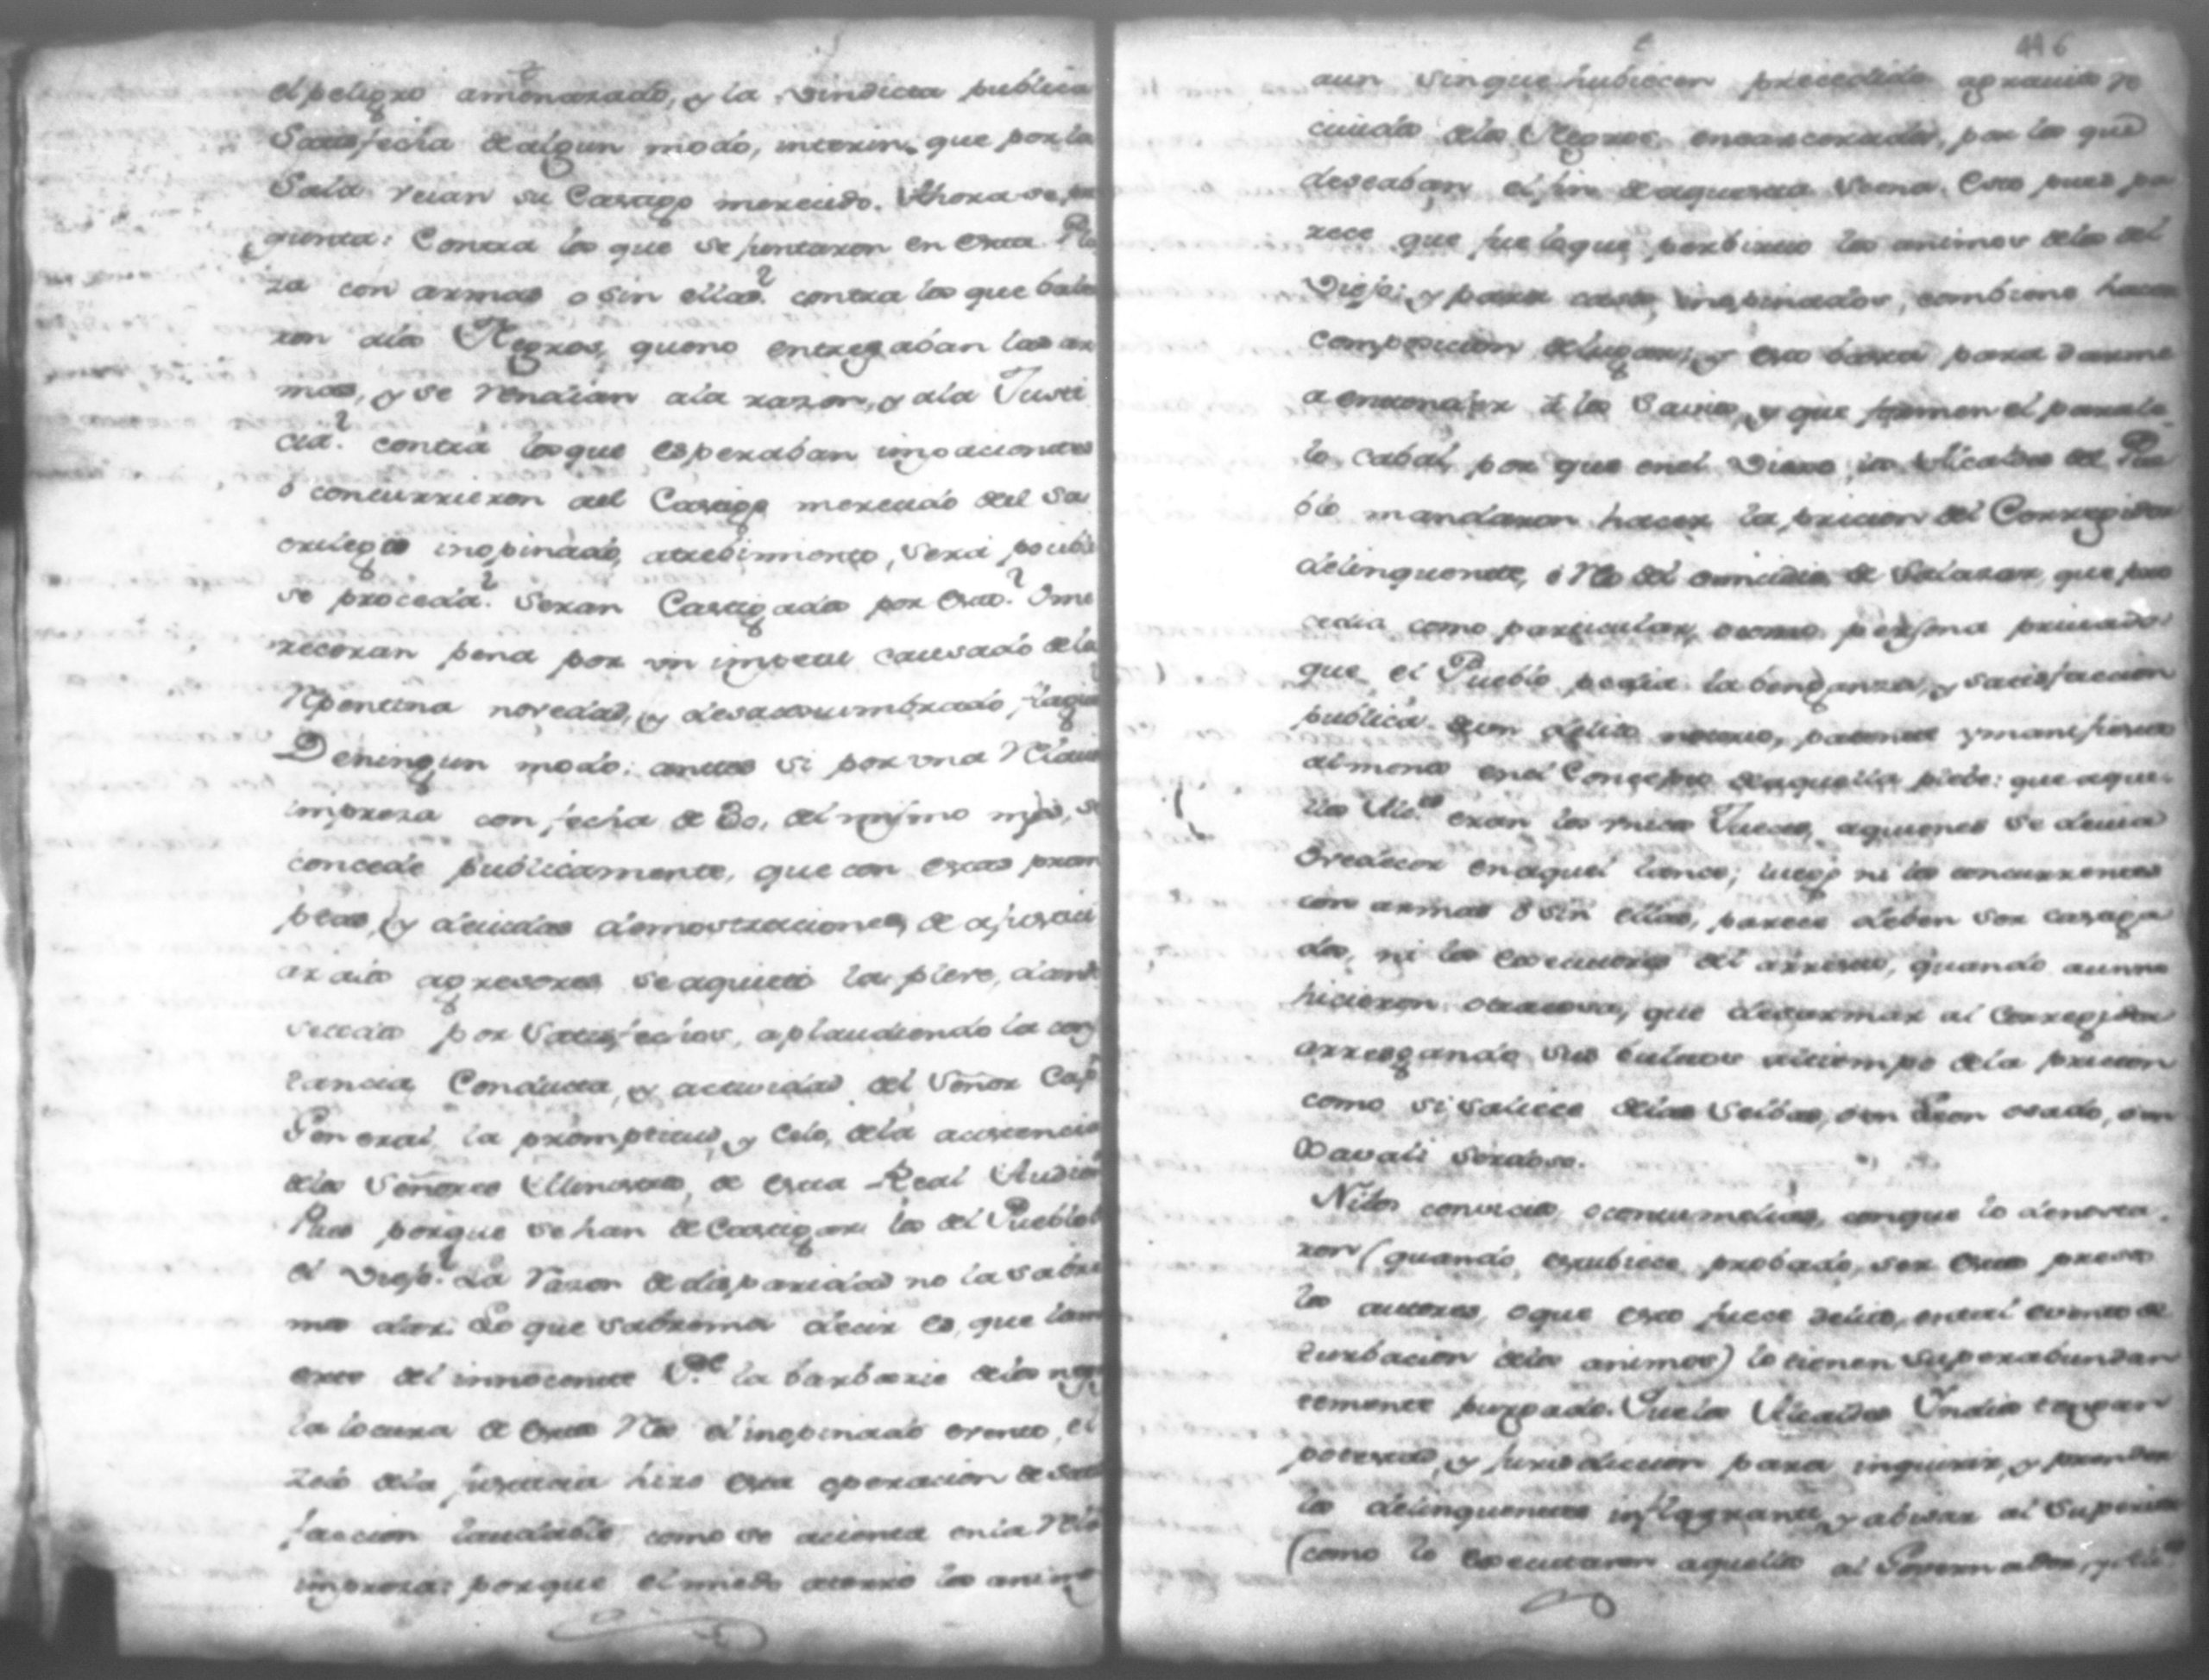 el peligro amenazado, y la vindicta publica
Satisfecha de algun modo, interin, que por la
Sala veian su Castigo merecido. Ahora se pre
gunta: Contra los que se juntaron en esta Pla
za con armas o sin ellas? contra los que bala
ron a los Negros, que no entregaban las ar
mas, y se rendian a la razon, y a la Justi
cia? contra los que esperaban impacientes
ó concurrieron al Castigo merecido del sa
crilego inopinado, atrebimiento, sera posible
se proceda? Seran Castigados por esto? O me
receran pena por un impetu causado de la
repentina novedad, y desacostumbrado
De ningun modo: antes si por una Relacion
impresa con fecha de 30, del mismo mes, se
concede publicamente, que con estas prom
ptas, y devidas demostraciones, de ajustici
ar a los agresores se aquietó la pleve, dando
se todos por Satisfechos, aplaudiendo la cons
tancia, Conducta, y actividad del Señor Cap.n
General, la promptitud, y Celo, de la asistencia
de los Señores Ministros, de esta Real Audien.a
Pues porque se han de Castigar los del Pueblo
el Viejo? La razon de disparidad no la sabre
mos dar. Lo que sabremos decir es, que la mu
erte del innocente la barbarie de los negros
la locura de estos Reos el inopinado evento, el
zelo de la justicia hizo esta operacion de satis
faccion laudable, como se acienta en la Relon
impresa: porque el miedo aterró los animos
116
aun sin que hubiecen precedido agravios re
civido de los Negros encarcerados, por lo que
deseaban el fin de aquesta Scena. Esto pues pa
rece que fue lo que perbirtio los animos de los del
Viejo: y para casos, inopinados, combiene hacer
composicion de lugar, y esto basta para darme
a entender á los Savios, y que formen el parale
lo cabal, por que en el Viejo, los Alcaldes del Pue
blo mandaron hacer la pricion del Corregidor
delinquente, ó Reo del omicidio de Salazar, que pro
cedia como particular, o como persona privada
que el Pueblo pedia la benganza, y satisfaccion
publica de un delito notorio, patente y manifiesto
al menos en el Concepto de aquella plebe: que aque
llos Alc.es eran los unicos Jueces, a quienes se devia
Ovedecer en aquel lance; luego ni los concurrentes
con armas ó sin ellas, parece deben ser castiga
dos, ni los executores del arresto, quando aun no
hicieron otra cosa, que desarmar al Corregidor
arresgando sus bultos al tiempo de la pricion
como si saliece de las Selbas, ó un Leon osado, ó un
Xavali Serdoso.
Ni los convicios, o contumelias, con que lo denosta
ron (quando estubiece probado, ser estos presos
los autores, o que esto fuece delito, en tal evento de
turbacion de los animos) lo tienen superabundan
temente purgado. Que los Alcaldes Yndios tengan
potestad, y jurisdiccion para inquirir, y prender
los delinquentes inflagranti, y abisar al Superior
(como lo executaron aquellos al Governador, y Alc.es